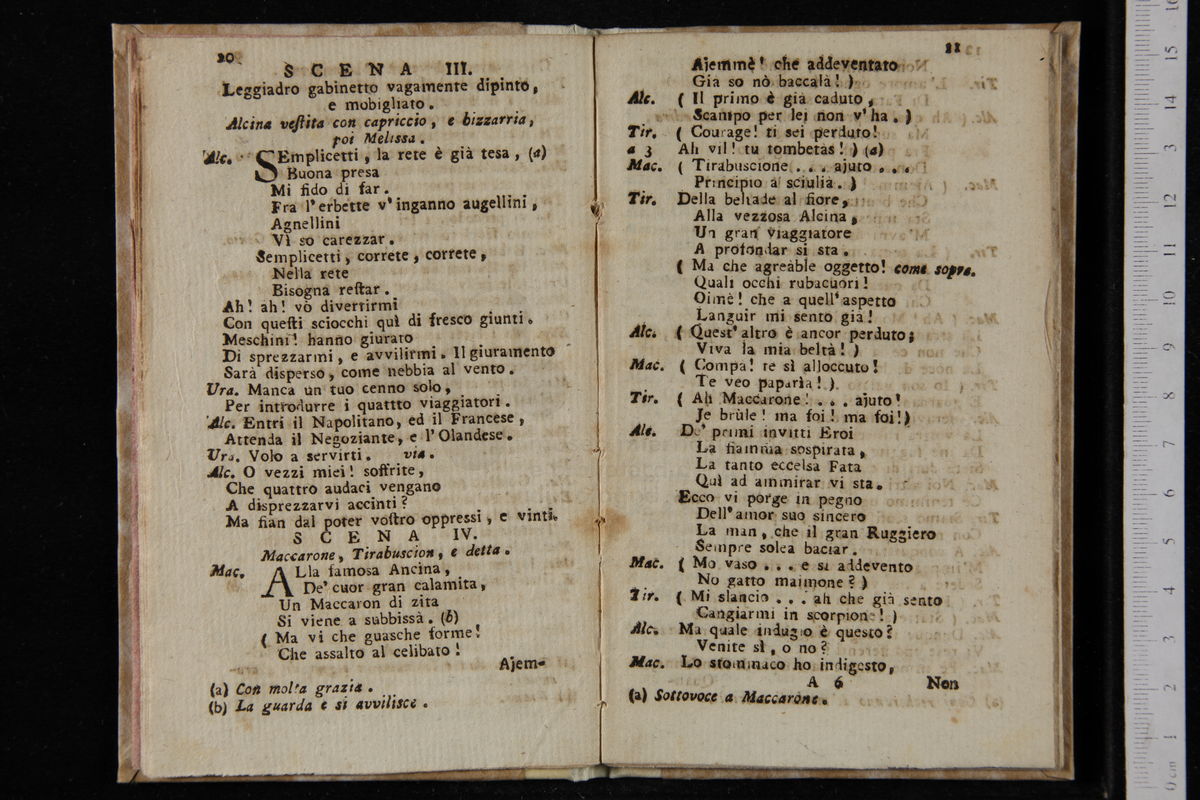 20
SCENA III.
Leggiadro gabinetto vagamente dipinto,
e mobigliato.
Alcina veſtita con capriccio, e bizzarria,
poi Melissa.
Alc. SEmplicetti, la rete è già tesa, (a)
Buona presa
Mi fido di far.
Fra l'erbette v'inganno augellini,
Agnellini
Vì so carezzar.
Semplicetti, correte, correte,
Nella rete
Bisogna reſtar.
Ah! ah! vò divertirmi
Con queſti sciocchi quì di fresco giunti.
Meschini! hanno giurato
Di sprezzarmi, e avvilirmi. Il giuramento
Sarà disperso, come nebbia al vento.
Ura. Manca un tuo cenno solo,
Per introdurre i quattto viaggiatori.
Alc. Entri il Napolitano, ed il Francese,
Attenda il Negoziante, e l'Olandese.
Ura. Volo a servirti. via.
Alc. O vezzi miei! soffrite,
Che quattro audaci vengano
A disprezzarvi accinti?
Ma fian dal poter voſtro oppressi, e vinti.
SCENA IV.
Maccarone, Tirabuscion, e detta.
Mac. ALla famosa Ancina,
De' cuor gran calamita,
Un Maccaron di zita
Si viene a subbissà. (b)
( Ma vi che guasche forme!
Che assalto al celibato!
Ajem-
(a) Con molta grazia.
(b) La guarda e si avvilisce.
11
Ajemmè! che addeventato
Gia so nò baccalà! )
Alc. ( Il primo è già caduto,
Scampo per lei non v'ha. )
Tir. ( Courage! ti sei perduto!
a 3 Ah vil! tu tombetas! ) (a)
Mac. ( Tirabuscione . . . ajuto . . .
Principio a sciulià. )
Tir. Della beltade al fiore,
Alla vezzosa Alcina,
Un gran Viaggiatore
A profondar si sta.
( Ma che agreàble oggetto! come sopra.
Quali occhi rubacuori!
Oimè! che a quell'aspetto
Languir mi sento già!
Alc. ( Quest'altro è ancor perduto;
Viva la mia beltà! )
Mac. ( Compa! te sì alloccuto!
Te veo paparìa! )
Tir. ( Ah Maccarone! . . . ajuto!
Je brùle! ma foi! ma foi!)
Alc. De' primi invitti Eroi
La fiamma sospirata,
La tanto eccelsa Fata
Quì ad ammirar vi sta.
Ecco vi porge in pegno
Dell'amor suo sincero
La man, che il gran Ruggiero
Sempre solea baciar.
Mac. ( Mo vaso . . . e si addevento
No gatto maimone? )
Tir. ( Mi slancio . . . ah che già sento
Cangiarmi in scorpione! )
Alc. Ma quale indugio è questo?
Venite sì, o no?
Mac. Lo stommaco ho indigesto,
A 6 Non
(a) Sottovoce a Maccarone.